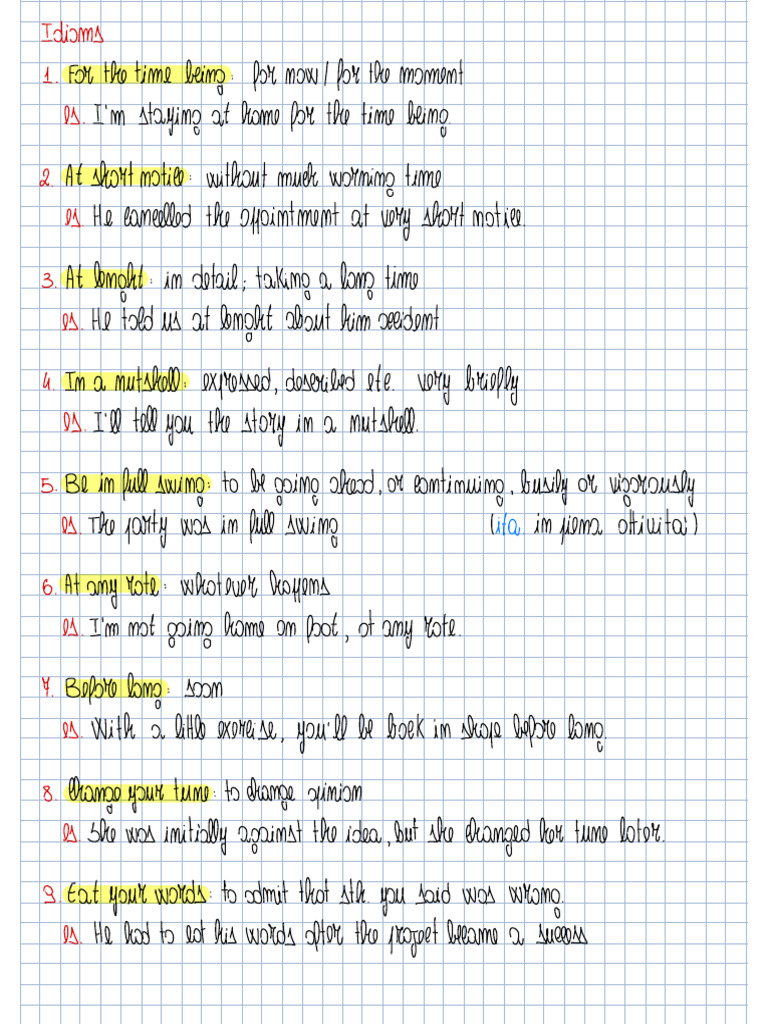 Idioms
1. For the time being: for now / for the moment
es. I'm staying at home for the time being.
2. At short notice: without much warning time
es. He cancelled the appointment at very short notice.
3. At lenght: in detail; taking a long time
es. He told us at lenght about him accident
4. In a nutshell: expressed, described etc. very briefly
es. I'll tell you the story in a nutshell.
5. Be in full swing: to be going ahead, or continuing, busily or vigorously
es. The party was in full swing (ita in piena attivita')
6. At any rate: whatever happens
es. I'm not going home on foot, at any rate.
7. Before long: soon
es. With a little exercise, you'll be back in shape before long.
8. Change your tune: to change opinion
es. She was initially against the idea, but she changed her tune later.
9. Eat your words: to admit that sth. you said was wrong.
es. He had to eat his words after the project became a success